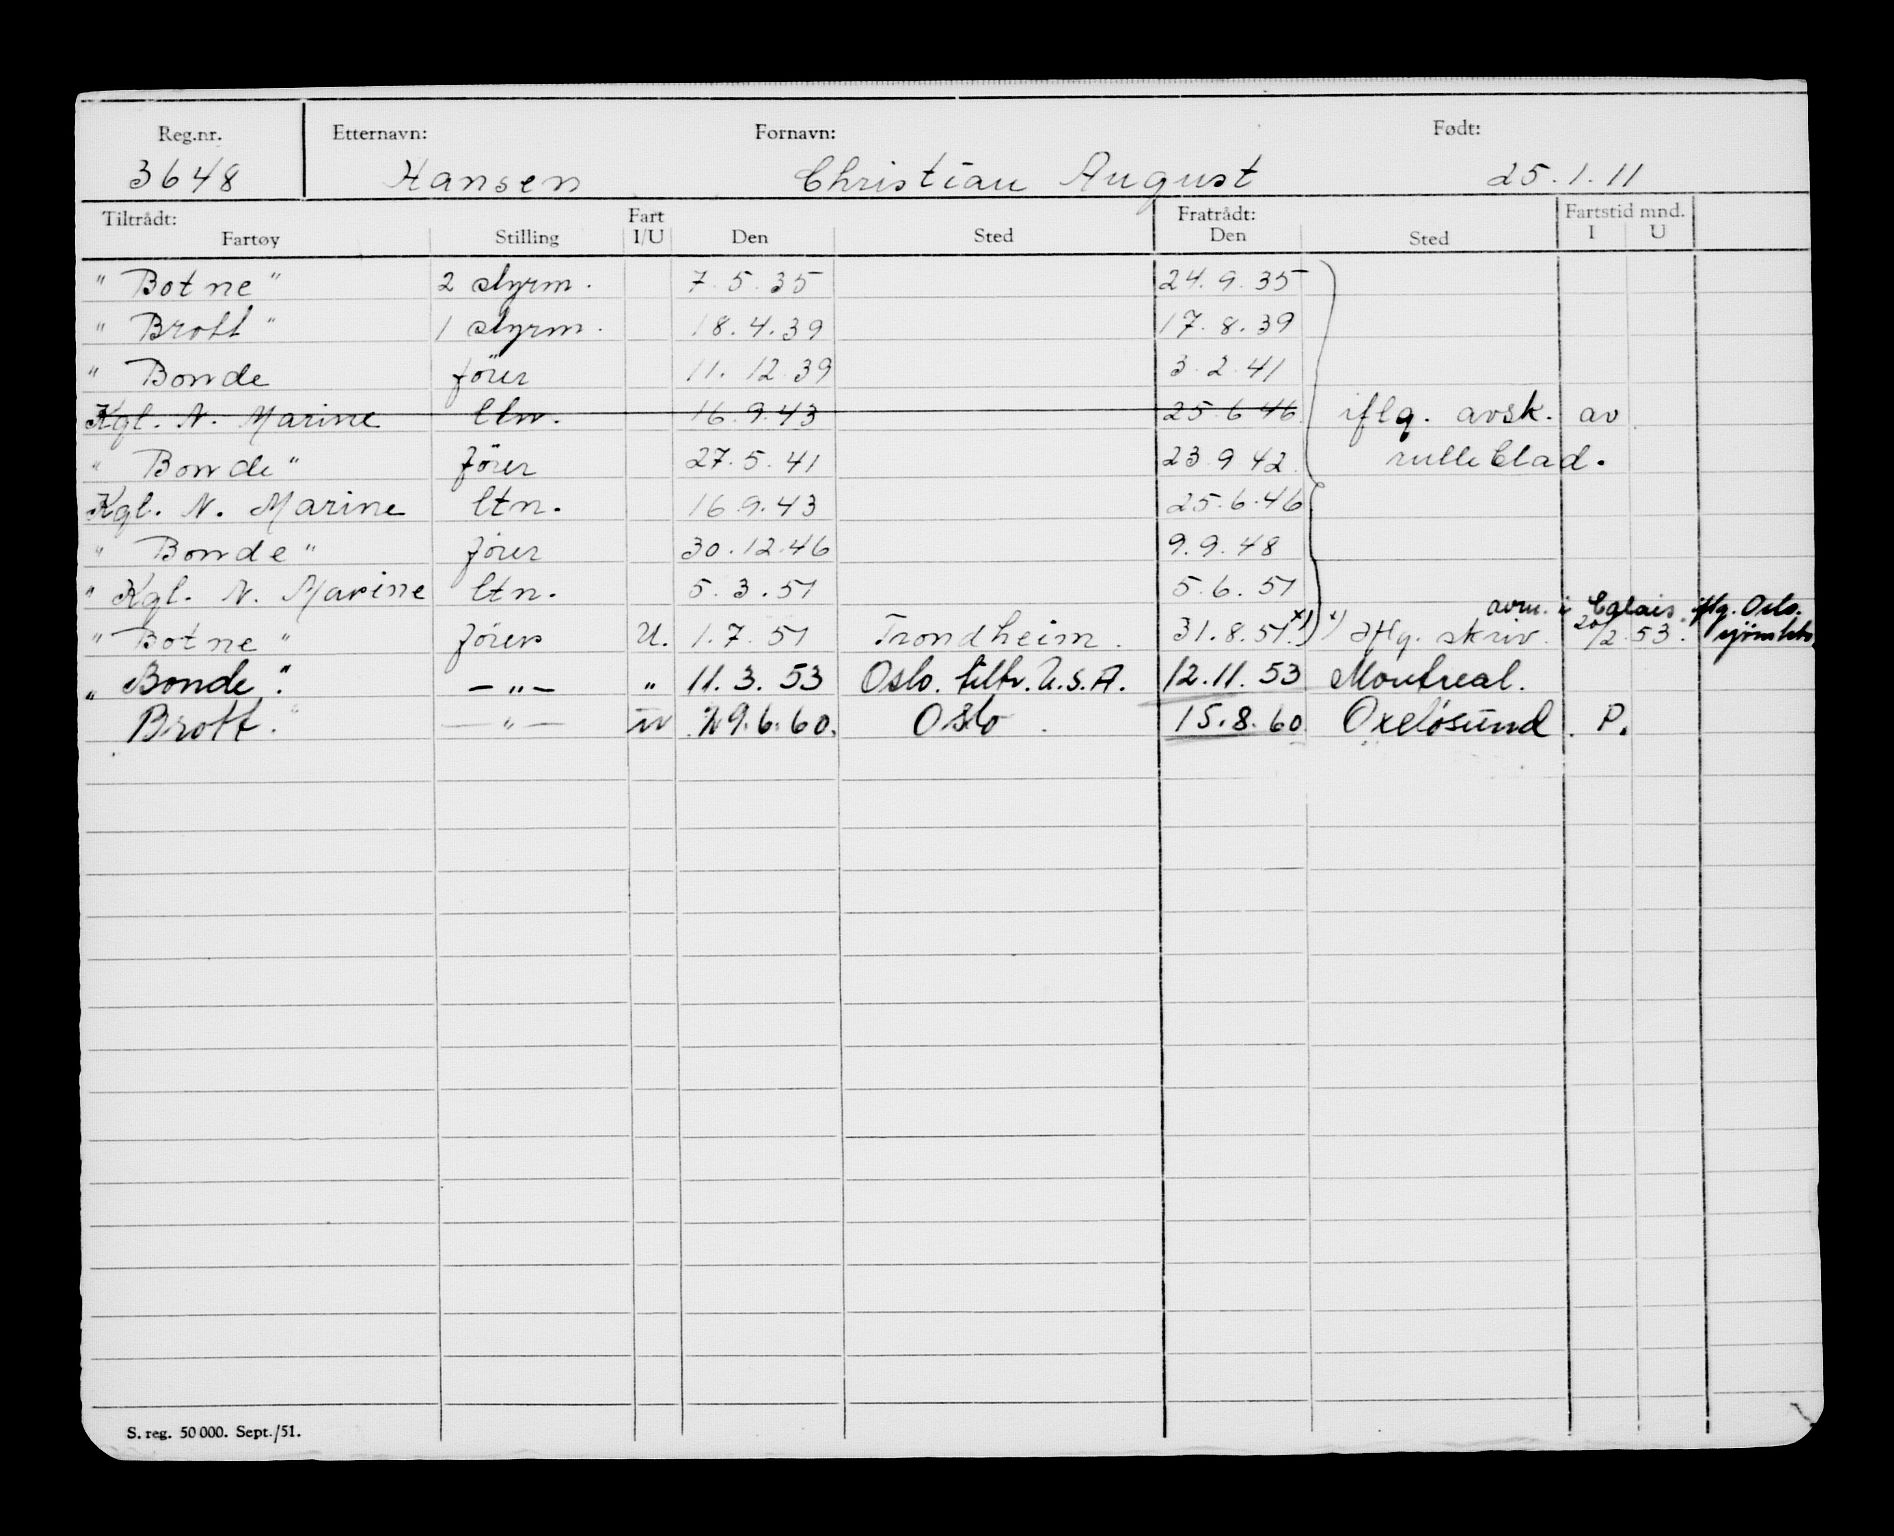 Reg.nr. Etternavn: Fornavn: Født:
3648 Hansen Christian August 25.1.11
Tiltrådt: Fart Fratrådt: Fartstid mnd.
Fartøy Stilling I/U Den Sted Den Sted I U
" Botne " 2 styrm. 7.5.35 24.9.35
" Brott " 1 styrm. 18.4.39 17.8.39
" Bonde förer 11.12.39 3.2.41
Kgl. N. Marine ltn. 16.9.43 25.6.46 iflg. avsk. av
" Bonde " förer 27.5.41 23.9.42 rulleblad.
Kgl. N. Marine ltn. 16.9.43 25.6.46
" Bonde " förer 30.12.46 9.9.48
" Kgl. N. Marine ltn. 5.3.51 5.6.51
avm. i Calais iflg. Oslo.
" Botne " förer U. 1.7.51 Trondheim. 31.8.51 x) x) Iflg. skriv. 20/2.53.
" Bonde " — " — " 11.3.53 Oslo. tiltr. U.S.A. 12.11.53 Montreal.
Brott. " — " — 29.6.60. Oslo. 15.8.60 Oxelösund. P.
S. reg. 50 000. Sept./51.